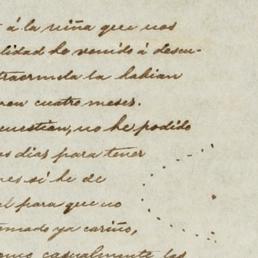 á la niña que nos
alidad he venido á descu-
traermela la habian
ren cuatro meses.
cuestion, no he podido
os dias para tener
nes si he de
el para que no
omado ya cariño,
omo casualmente los